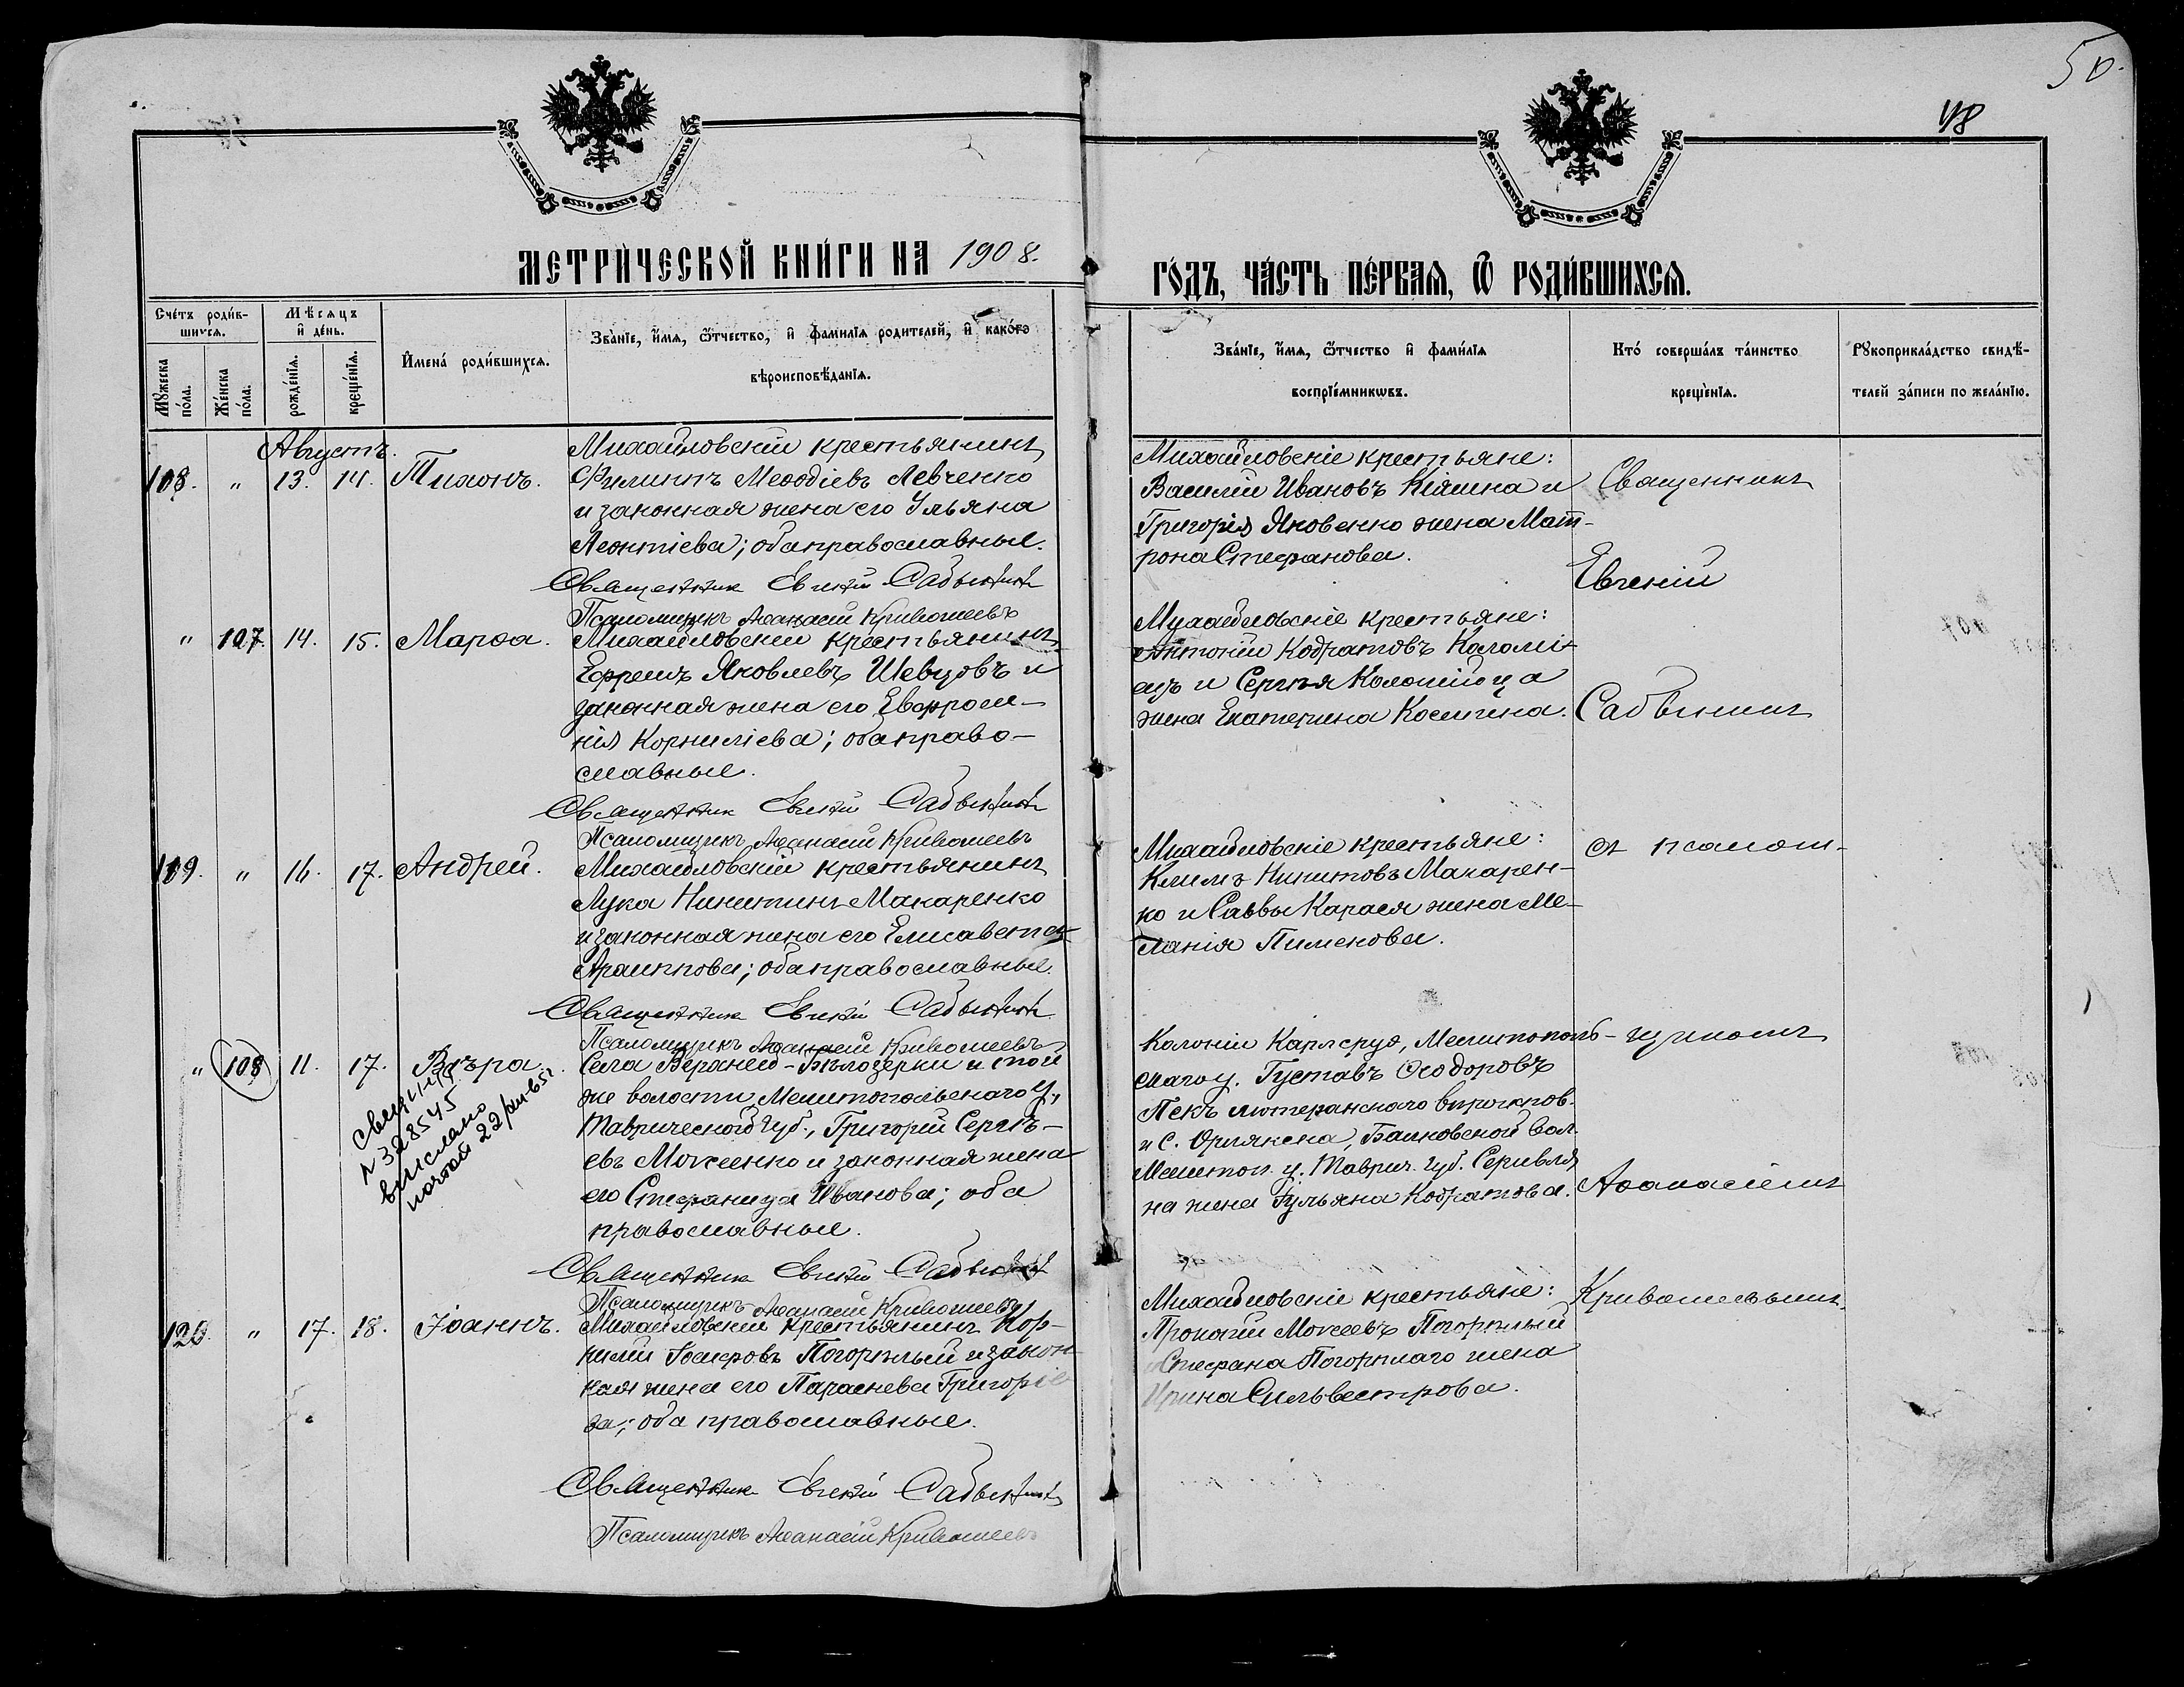 50.
48
МЕТРИЧЕСКОЙ КНИГИ НА 1908.
ГОДЪ, ЧАСТЬ ПЕРВАЯ, Ѿ РОДИВШИХСЯ.
Счетъ родив-
шихся.
Мѣсяцъ
и день.
Мужеска
пола.
Женска
пола.
рожденія.
крещенія.
Имена родившихся.
Званіе, имя, ѿтчество, и фамилія родителей, и какого
вѣроисповѣданія.
Званіе, имя, ѿтчество и фамилія
воспріемниковъ.
Кто совершалъ таинство
крещенія.
Рукоприкладство свидѣ-
телей записи по желанію.
Августъ.
108. " 13. 14. Тихонъ.
Михайловскій крестьянинъ
Филиппъ Меѳодіевъ Левченко
и законная жена его Ульяна
Леонтіева; оба православные.
Священникъ Евгеній Савынинъ
Псаломщикъ Аѳанасій Кривошеевъ
Михайловскіе крестьяне:
Василій Ивановъ Кіяшина и
Григорія Яковенко жена Мат-
рона Стефанова.
" 107. 14. 15. Марѳа.
Михайловскій крестьянинъ
Ефремъ Яковлевъ Шевцовъ и
законная жена его Евфроси-
нія Корниліева; оба право-
славные.
Священникъ Евгеній Савынинъ
Псаломщикъ Аѳанасій Кривошеевъ
Михайловскіе крестьяне:
Антоній Кодратовъ Коломі-
ецъ и Сергѣя Коломійца
жена Екатерина Космина.
109. " 16. 17. Андрей.
Михайловскій крестьянинъ
Лука Никитинъ Макаренко
и законная жена его Елисавета
Архиппова; оба православные.
Священникъ Евгеній Савынинъ
Псаломщикъ Аѳанасій Кривошеевъ
Михайловскіе крестьяне:
Климъ Никитовъ Макарен-
ко и Саввы Карася жена Ме-
ланія Пименова.
" 108 11. 17. Вѣра.
Свид
№ 328545
выслано
почтой 22/
Села Верхней-Бѣлозерки и той
же волости, Мелитопольскаго у.,
Таврической губ., Григорій Сергѣ-
евъ Моисеенко и законная жена
его Стефанида Иванова; оба
православные.
Священникъ Евгеній Савынинъ
Псаломщикъ Аѳанасій Кривошеевъ
Колоніи Карлсруэ, Мелитополь-
скаго у. Густавъ Ѳеодоровъ
Пекъ лютеранскаго вѣроиспов.
и с. Орлянска, Балковской вол.
Мелитоп. у. Таврич. губ.
на жена Гульяна Кодратова.
120. " 17. 18. Іоаннъ.
Михайловскій крестьянинъ Кор-
нилій Іосифовъ Погорѣлый и закон-
ная жена его Параскева Григоріе-
ва; оба православные.
Священникъ Евгеній Савынинъ
Псаломщикъ Аѳанасій Кривошеевъ
Михайловскіе крестьяне:
Прокопій Моисеевъ Погорѣлый
и Стефана Погорѣлаго жена
Ирина Сильвестрова.
Священникъ
Евгеній
Савынинъ
съ псалом-
щикомъ
Аѳанасіемъ
Кривошеевымъ.